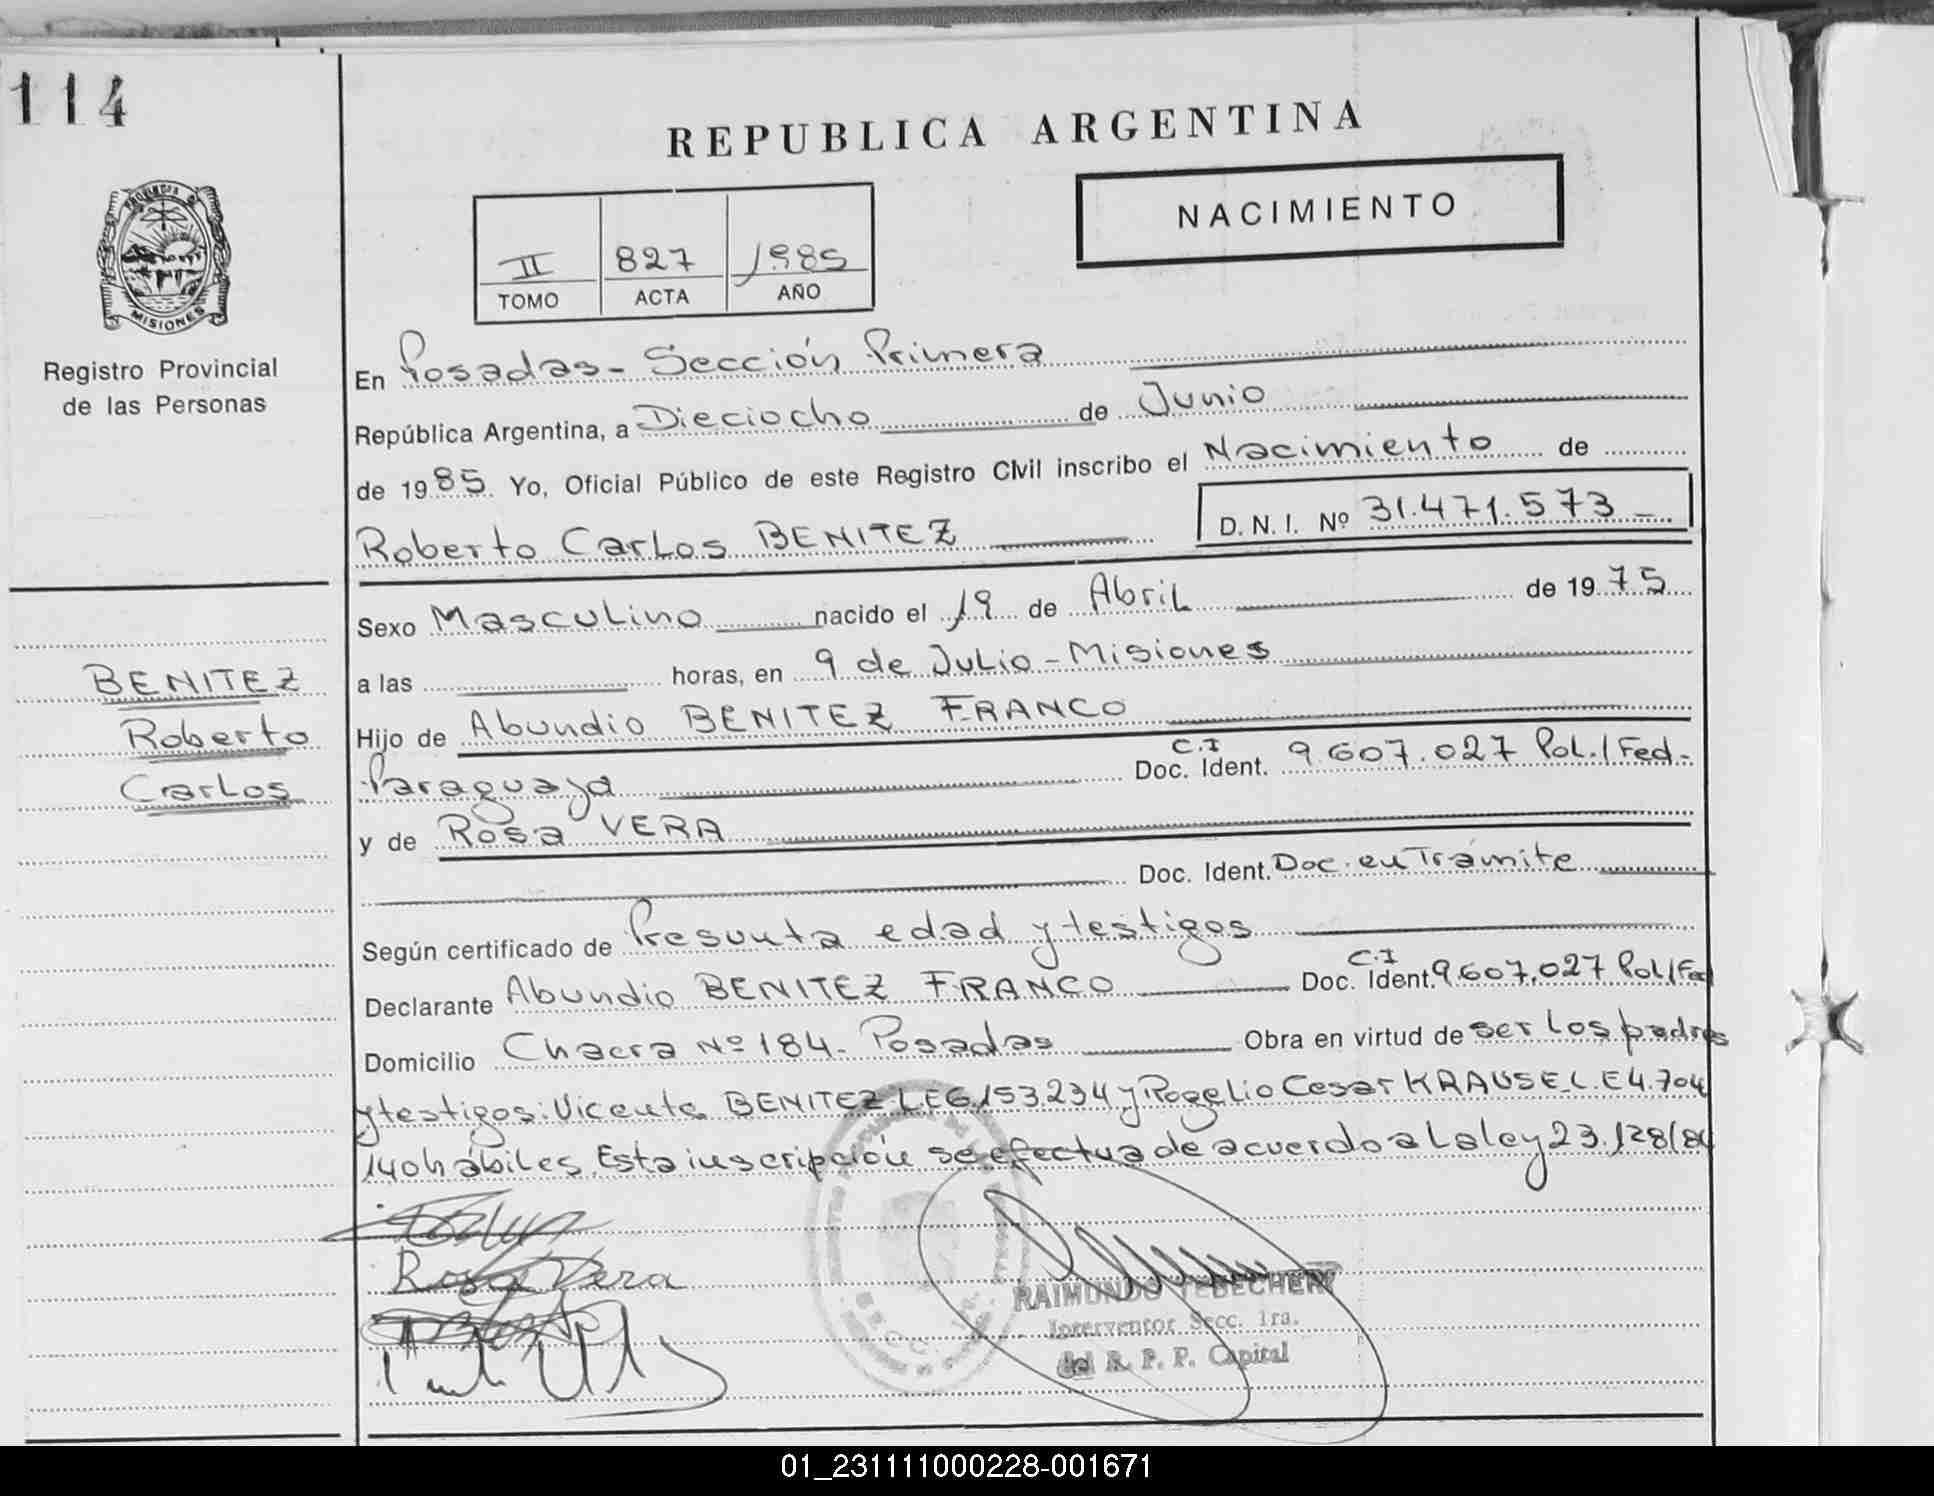 114
REPUBLICA ARGENTINA
NACIMIENTO
II 827 1985
TOMO ACTA AÑO
PROVINCIA DE
MISIONES
Registro Provincial
de las Personas
En Posadas - Sección Primera
República Argentina, a Dieciocho de Junio
de 1985. Yo, Oficial Público de este Registro Civil inscribo el Nacimiento de
Roberto Carlos BENITEZ D. N. I. Nº 31.471.573 -
Sexo Masculino nacido el 19 de Abril de 1975
a las horas, en 9 de Julio - Misiones
Hijo de Abundio BENITEZ FRANCO
Paraguaya C.I Doc. Ident. 9.607.027 Pol./Fed.-
y de Rosa VERA
Doc. Ident. Doc. en Trámite
Según certificado de Presunta edad y testigos
Declarante Abundio BENITEZ FRANCO C.I Doc. Ident. 9.607.027 Pol/Fed
Domicilio Chacra Nº 184 - Posadas Obra en virtud de ser los padres
y testigos: Vicente BENITEZ L.E 6.153.234 y Rogelio Cesar KRAUSE L.E 4.704
140 hábiles. Esta inscripción se efectua de acuerdo a la ley 23.128/84
BENITEZ
Roberto
Carlos
Rosa Vera
RAIMUNDO YEDECHERY
Interventor Secc. 1ra.
del R. P. P. Capital
01_231111000228-001671